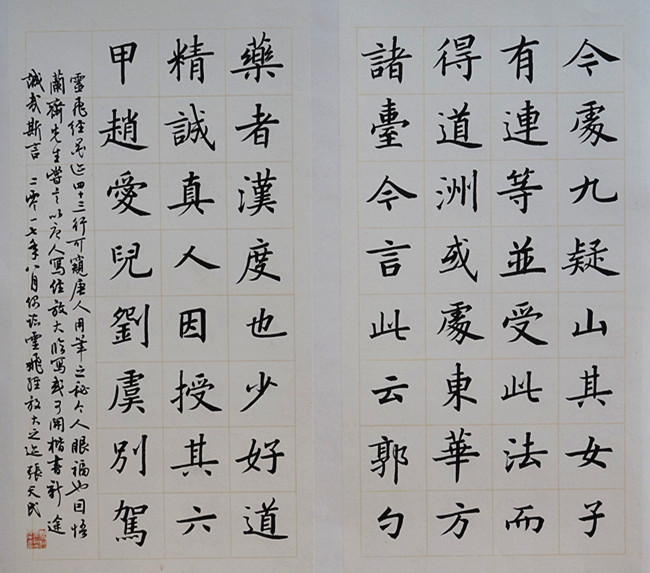 今處九疑山其女子
有連等並受此法而
得道洲或處東華方
諸臺今言此云郭勺
藥者漢度也少好道
精誠真人因授其六
甲趙愛兒劉虞別駕
靈飛經墨迹四十三行可窺唐人用筆之秘今人眼福也因悟
蘭齋先生嘗言以唐人寫經放大臨寫或可開楷書新途
誠哉斯言二零一七年八月靈飛經放大之迹張天民